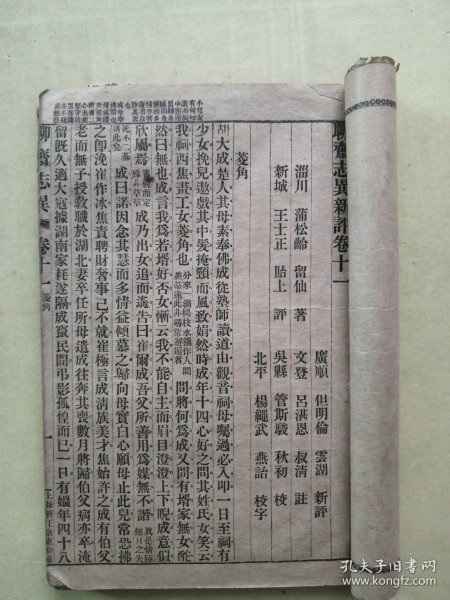 聊齋志異新評卷十一
淄川 蒲松齡 留仙 著
新城 王士正 貽上 評
廣順 但明倫 雲湖 新評
文登 呂湛恩 叔清 註
吳縣 管斯駿 秋初 校
北平 楊繩武 燕詒 校字
菱角
胡大成楚人其母素奉佛成從塾師讀道由觀音祠母囑過必入叩一日至祠有
少女挽兒遨戲其中髮掩頸而風致娟然時成年十四心好之問其姓氏女笑云
我祠西焦畫工女菱角也
問將何爲成又問有壻家無女酡
然曰無也成言我爲若壻好否女慚云我不能自主而眉目澄澄上下睨成意似
欣屬焉
成乃出女追而遙告曰崔爾成吾父所善用爲媒無不諧
成曰諾因念其慧而多情益傾慕之歸向母實白心願母止此兒常恐拂
之卽浼崔作冰焦責聘財奢事已不就崔極言成淸族美才焦始許之成有伯父
老而無子授敎職於湖北妻卒任所母遣成往奔其喪數月將歸伯父病亦卒淹
留旣久適大寇據湖南家耗遂隔成竄民間弔影孤惶而已一日有媼年四十八
聊齋志異 卷十一 菱角
一
孔夫子旧书网